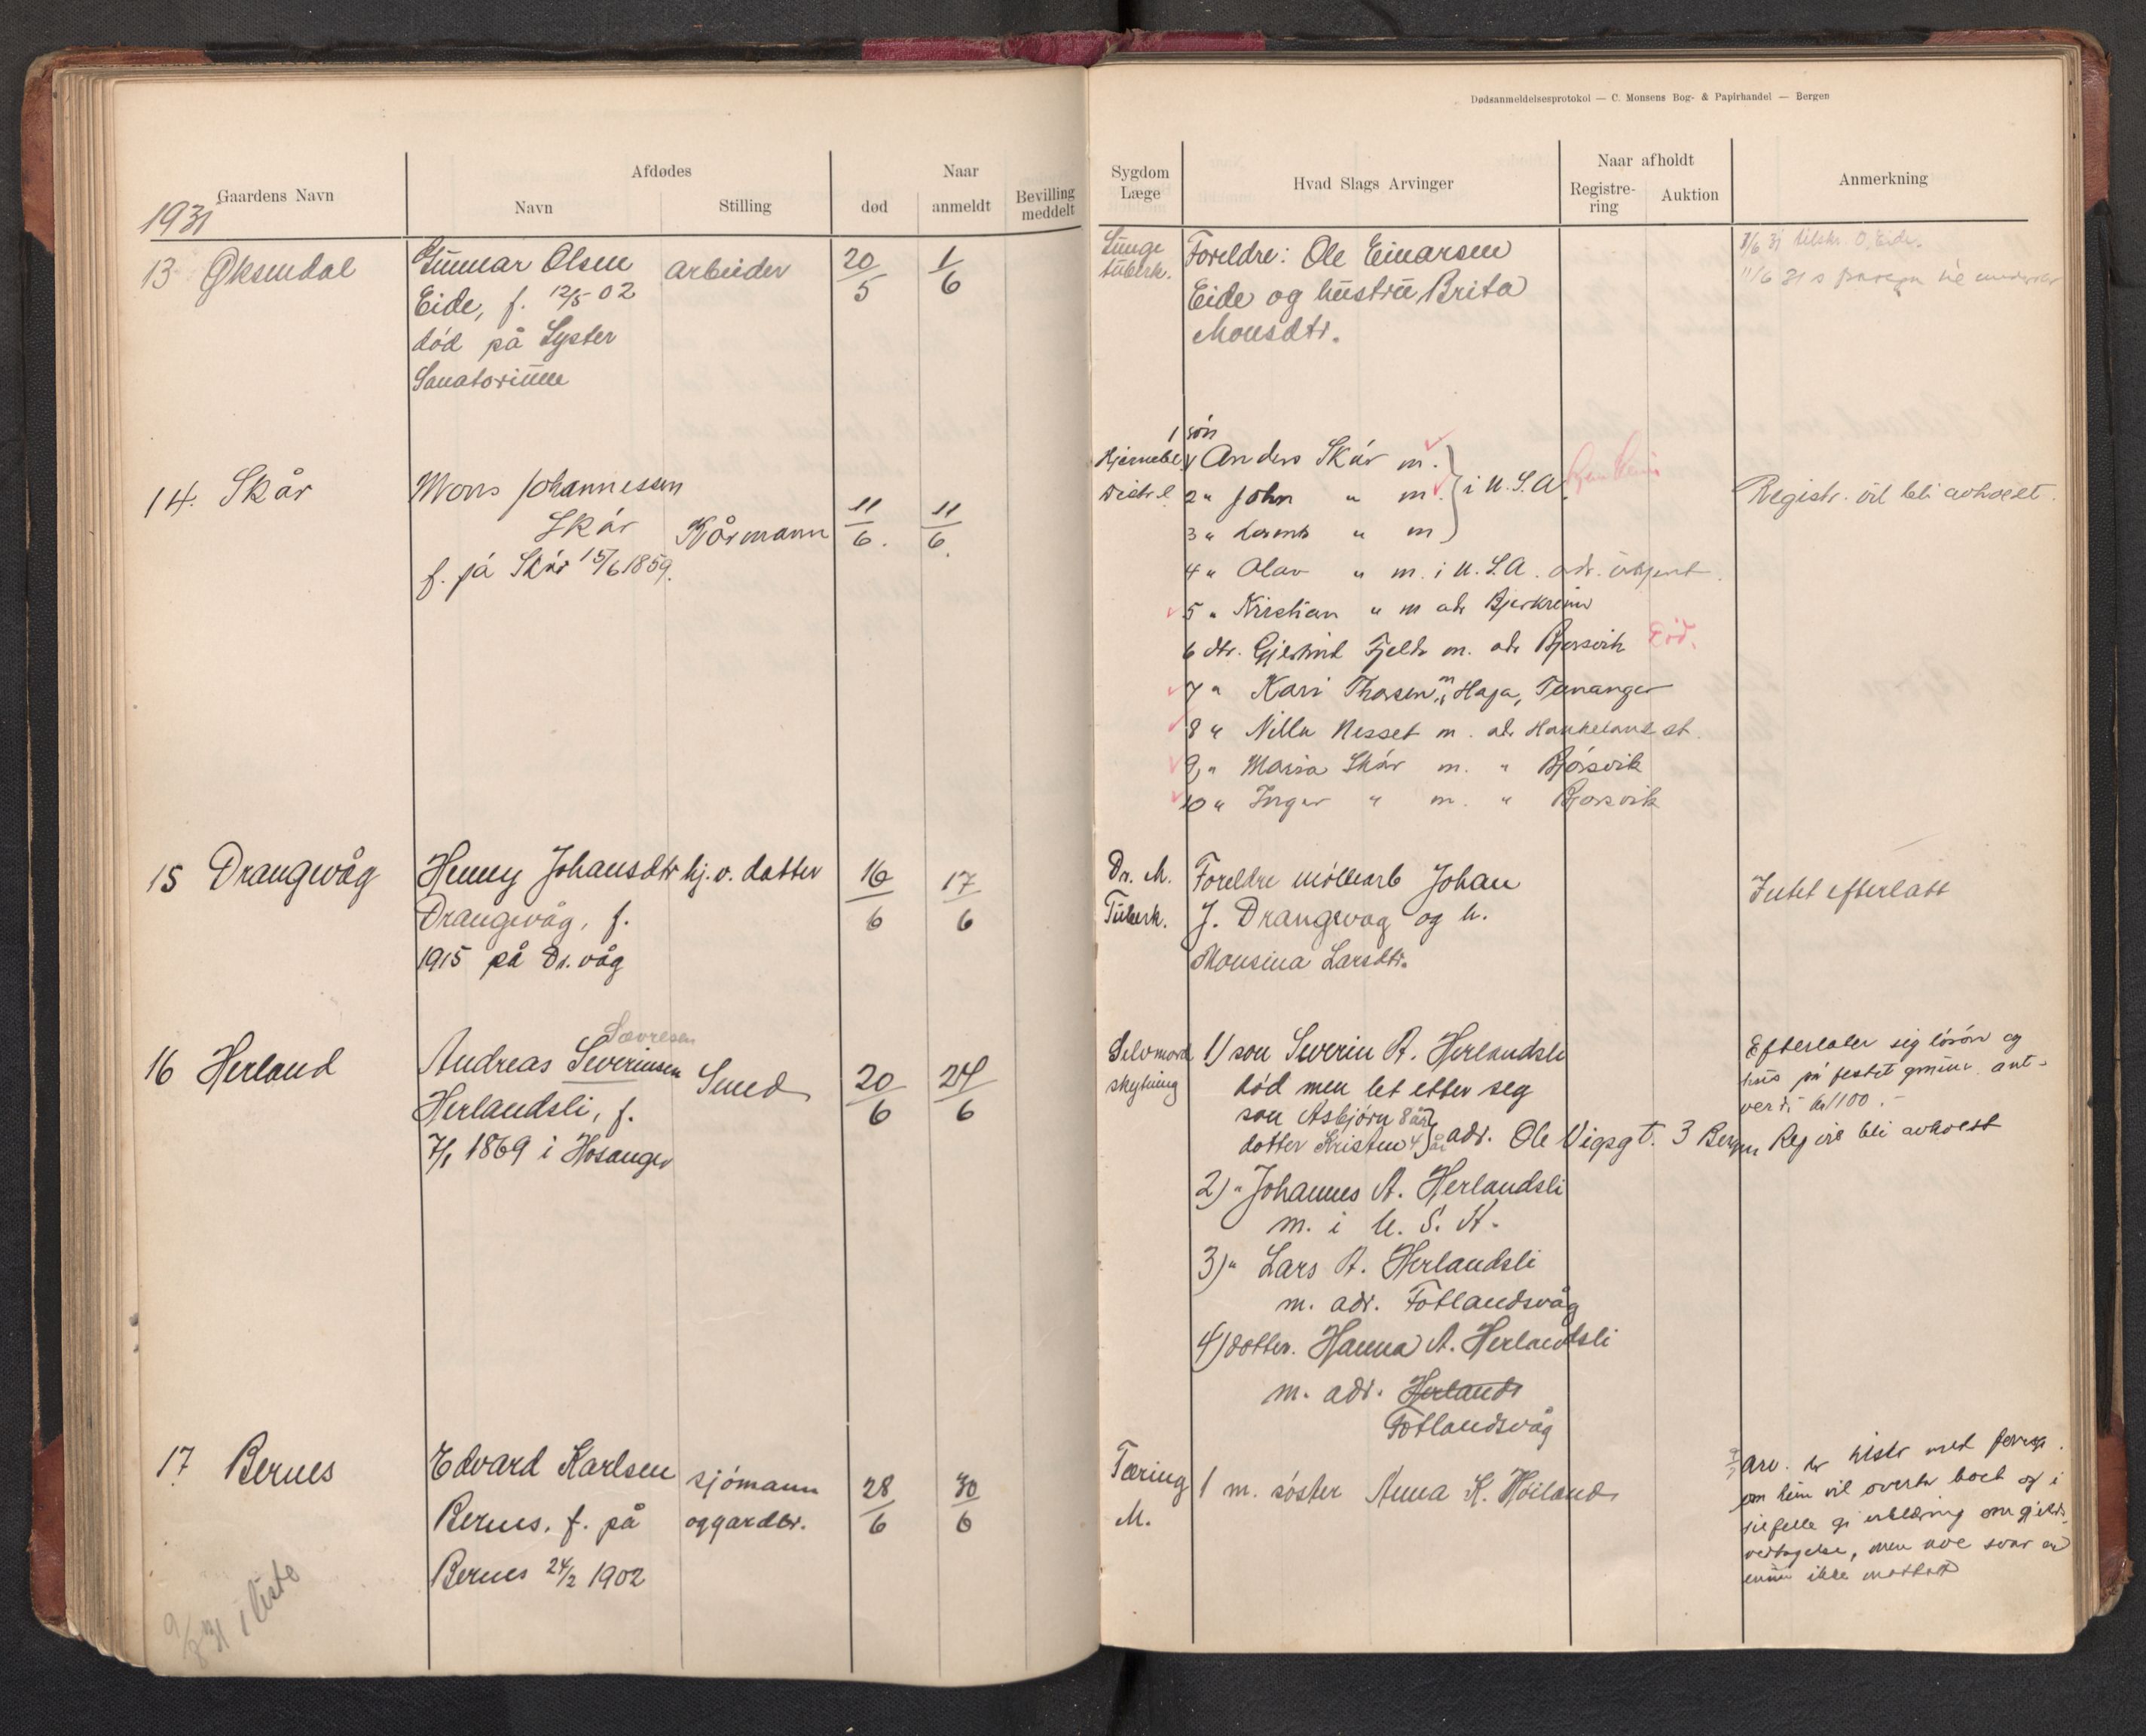 Dødsanmeldelsesprotokol — C. Monsens Bog- & Papirhandel — Bergen
Gaardens Navn
Afdødes
Navn
Stilling
Naar
død
anmeldt
Bevilling meddelt
Sygdom
Læge
Hvad Slags Arvinger
Naar afholdt
Registre-
ring
Auktion
Anmerkning
1931
13 Øksendal
Gunnar Olsen
Eide, f. 12/5 02
død på Lyster
Sanatorium
arbeider
20/5
1/6
Lunge
tuberk.
Foreldre: Ole Einarsen
Eide og hustru Brita
Monsdtr.
O. Eide.
11/6 31
14. Skår
Mons Johannessen
Skår
f. på Skår 15/6 1859.
Kårmann
11/6.
11/6.
Hjernebl.
Distr. l.
1 søn
1 Anders Skår m.
2 " John " m.
3 " " m
i U.S.A.
4 " Olav " m. i U.S.A. adr. ukjent.
5 " Kristian " m adr Bjerkreim
6 dtr. Gjertrud Fjeld m. adr Bjørsvik
Død.
7 " Kari Thorsen, m Haga, Tananger
8 " Nilla Nesset m. adr Haukeland st.
9 " Maria Skår m. " Bjørsvik
10 " Inger " m. " Bjørsvik
Registr. vil bli avholdt.
15 Drangevåg
Henny Johansdtr
Drangevåg, f.
1915 på Dr. våg
hj. v. datter
16/6
17/6
Dr. M.
Tuberk.
Foreldre møllearb Johan
J. Drangevåg og h.
Monsina Larsdtr.
Intet efterlatt
16 Herland
Sævresen
Andreas Severinsen
Herlandsli, f.
7/1 1869 i Hosanger
Smed
20/6
24/6
Selvmord
skytning
1) søn Severin A. Herlandsli
død men let etter seg
søn Asbjørn 8 år
dotter Kristen 4 år
adr. Ole Vigsgt. 3 Bergen
2) " Johannes A. Herlandsli
m. i U. S. A.
3) " Lars A. Herlandsli
m. adr. Fotlandsvåg
4) dotter. Hanna A. Herlandsli
m. adr. Herland
Fotlandsvåg
Efterlater sig løsøre og
hus på festet grunn. ant.
verdi kr 1100.-
Reg vil bli avholdt
17 Bernes
Edvard Karlsen
Bernes, f. på
Bernes 24/2 1902
sjømann
og gardbr.
28/6
30/6
Tæring
M.
1 m. søster Anna K. Høiland
Arv. er tilskr med forresp.
om hun vil overta boet og i
tilfelle gi erklæring om gjelds
vedtagelse, men noe svar er
ennu ikke mottatt
9/8 31 i liste